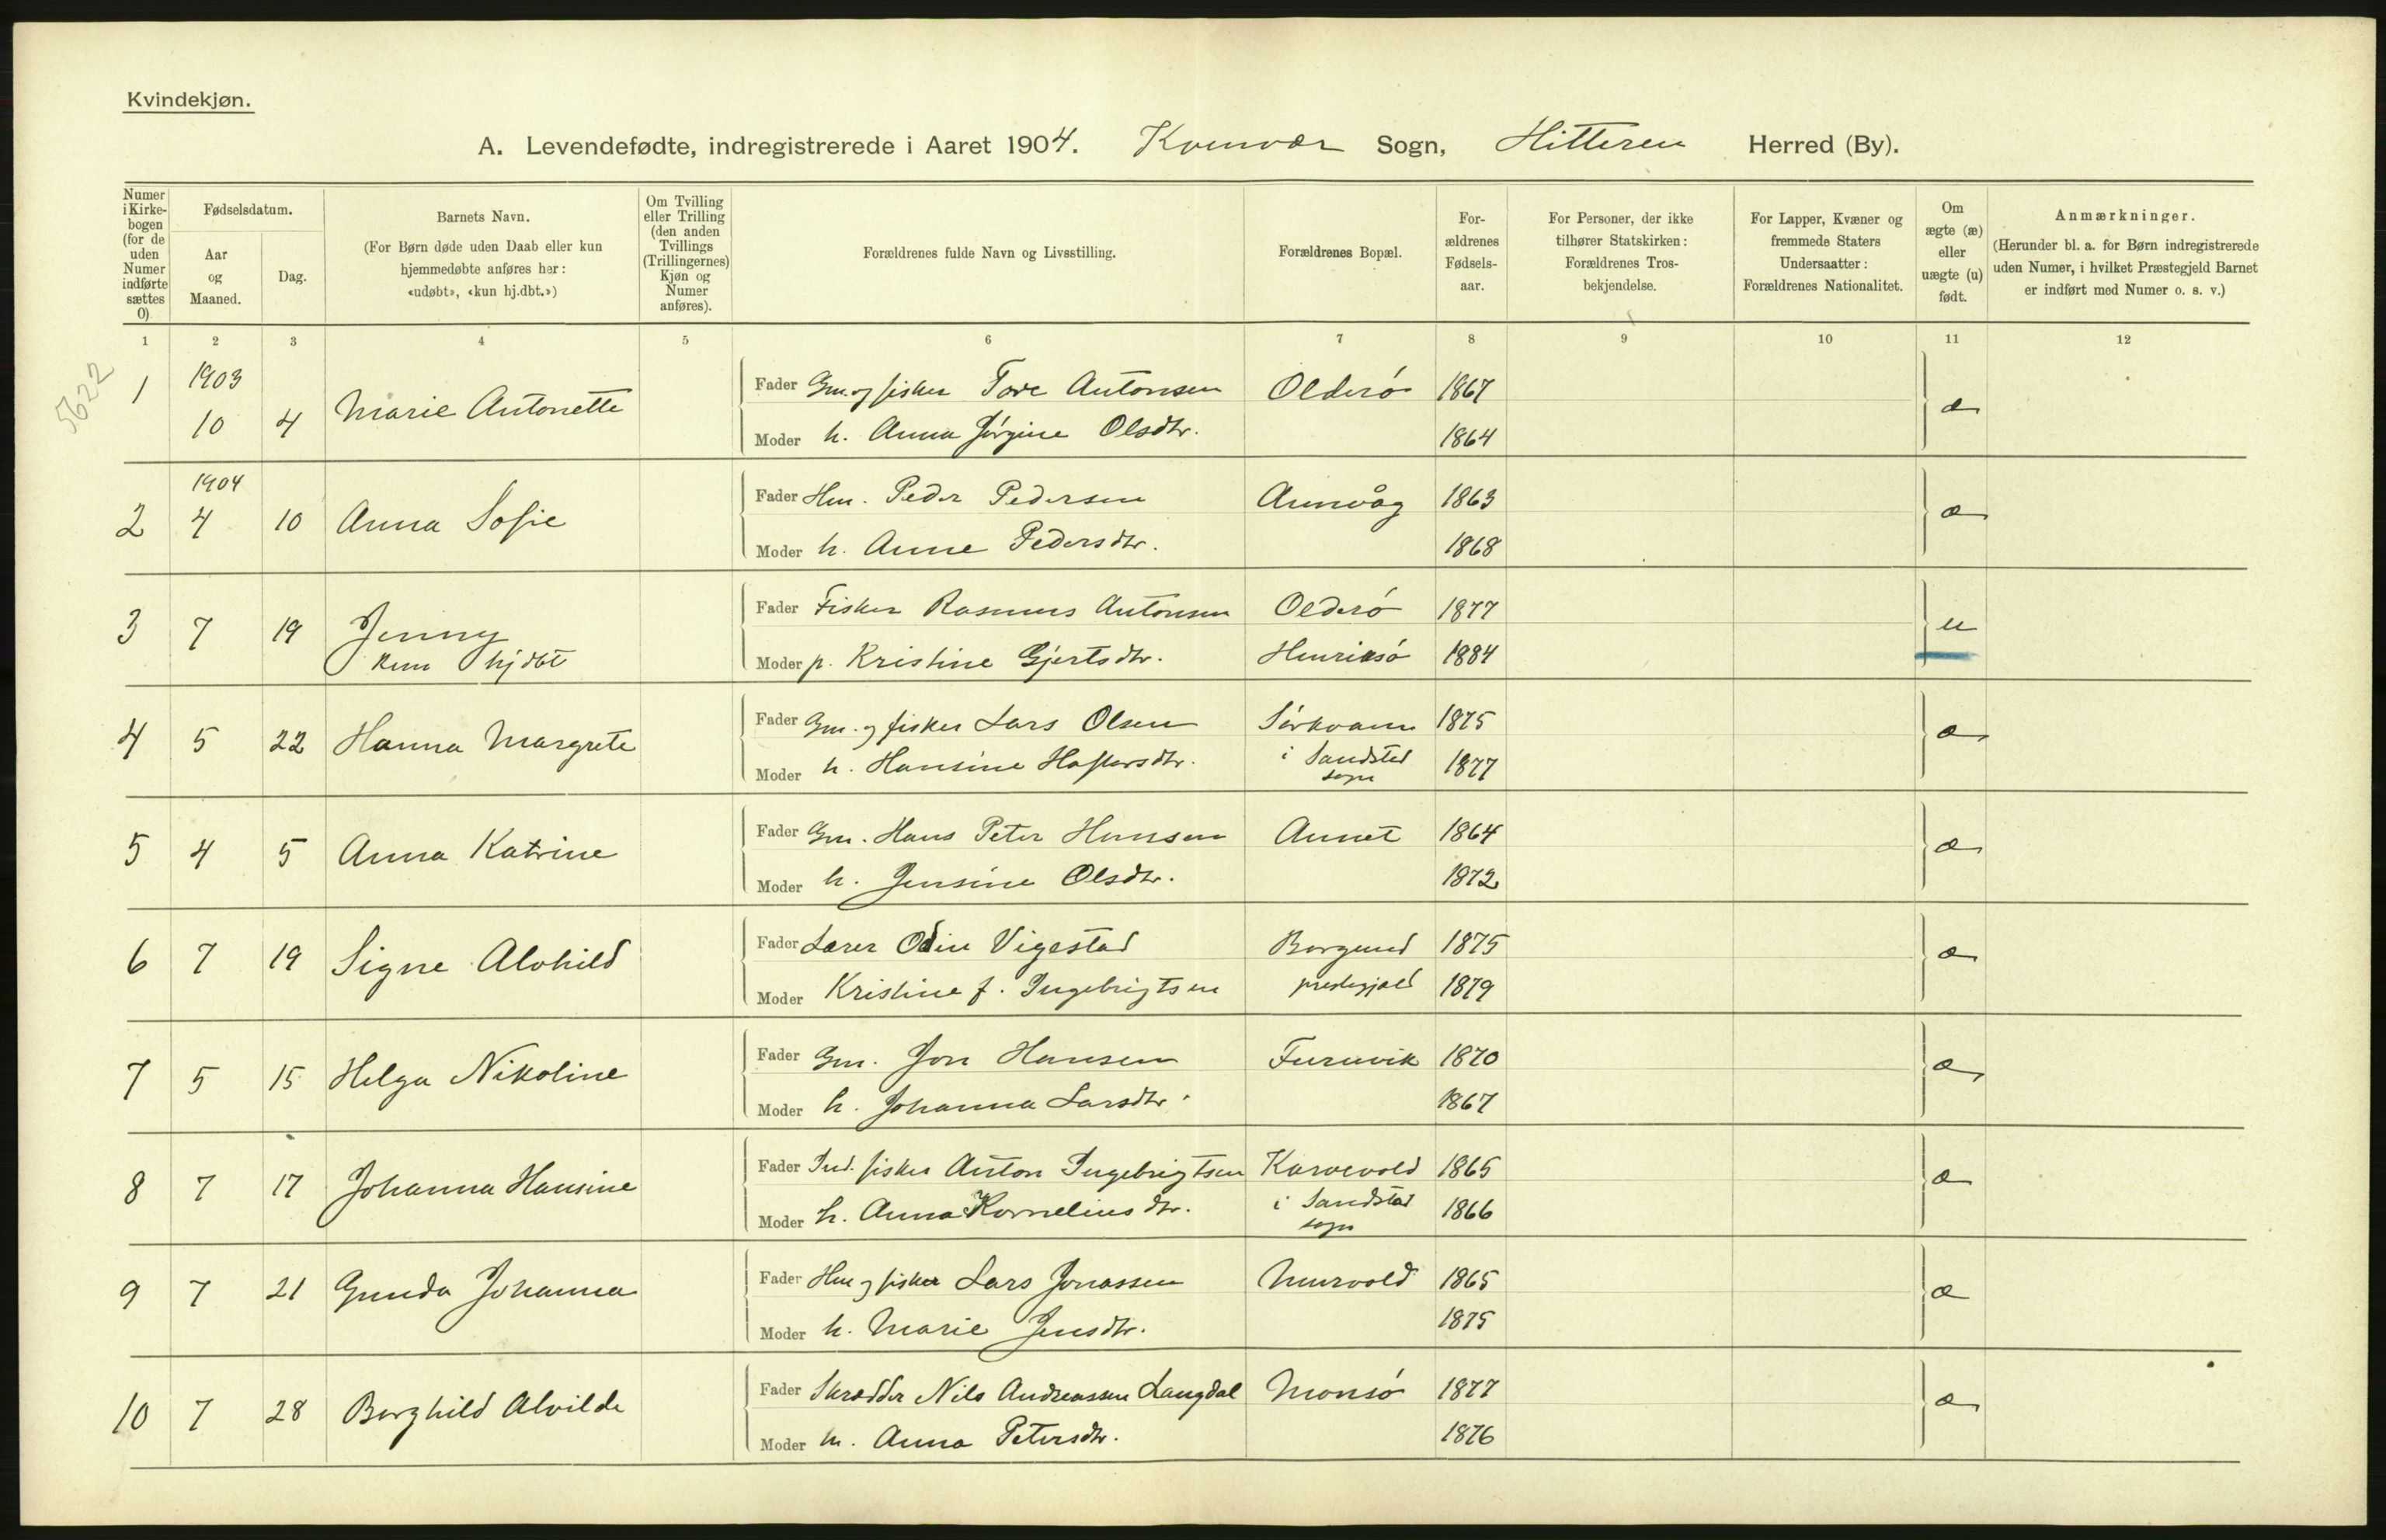 Kvindekjøn.
A. Levendefødte, indregistrerede i Aaret 1904. Kvenvær Sogn, Hitteren Herred (By).
Numer i Kirke- bogen (for de uden Numer indførte sættes 0)
Fødselsdatum.
Aar og Maaned.
Dag.
Barnets Navn.
(For Børn døde uden Daab eller kun hjemmedøbte anføres her: «udøbt», «kun hj.dbt.»)
Om Tvilling eller Trilling (den anden Tvillings (Trillingernes) Kjøn og Numer anføres).
Forældrenes fulde Navn og Livsstilling.
Forældrenes Bopæl.
For- ældrenes Fødsels- aar.
For Personer, der ikke tilhører Statskirken: Forældrenes Tros- bekjendelse.
For Lapper, Kvæner og fremmede Staters Undersaatter: Forældrenes Nationalitet.
Om ægte (æ) eller uægte (u) født.
Anmærkninger.
(Herunder bl. a. for Børn indregistrerede uden Numer, i hvilket Præstegjeld Barnet er indført med Numer o. s. v.)
1 2 3 4 5 6 7 8 9 10 11 12
5622
1 1903 10 4 Marie Antonette Fader Gm. og fisker Tore Antonsen Olderø 1867 æ
Moder h. Anna Jørgine Olsdtr. 1864
2 1904 4 10 Anna Sofie Fader Hm. Peder Pedersen Aunvåg 1863 æ
Moder h. Anne Pedersdtr. 1868
3 7 19 Jenny Fader Fisker Rasmus Antonsen Olderø 1877 u
kun hjdbt Moder p. Kristine Gjertsdtr. Henriksø 1884
4 5 22 Hanna Margrete Fader Gm. og fisker Lars Olsen Sørkvam 1875 æ
Moder h. Hansine Haftorsdtr. i Sandstad sogn 1877
5 4 5 Anna Katrine Fader Gm. Hans Peter Hansen Aunet 1864 æ
Moder h. Jensine Olsdtr. 1872
6 7 19 Signe Alvhild Fader Lærer Odin Vigestad Borgund 1875 æ
Moder Kristine f. Ingebrigtsen prestegjæld 1879
7 5 15 Helga Nikoline Fader Gm. Jon Hansen Furuvik 1870 æ
Moder h. Johanna Larsdtr. 1867
8 7 17 Johanna Hansine Fader Ind. fisker Anton Ingebrigtsen Karvevold 1865 æ
Moder h. Anna Kornelius dtr. i Sandstad sogn 1866
9 7 21 Gunda Johanna Fader Hm og fisker Lars Jonassen Murvold 1865 æ
Moder h. Marie Jensdtr. 1875
10 7 28 Borghild Alvilde Fader Skrædder Nils Andreassen Langdal Monsø 1877 æ
Moder h. Anna Petersdtr. 1876